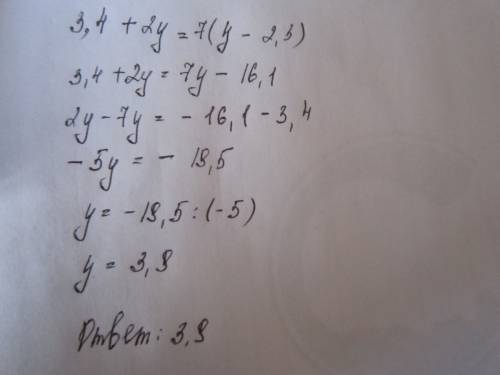 3,4 + 2y = 7(y - 2,3)
3,4 + 2y = 7y - 16,1
2y - 7y = - 16,1 - 3,4
- 5y = - 19,5
y = - 19,5 : (-5)
y = 3,9
Ответ: 3,9